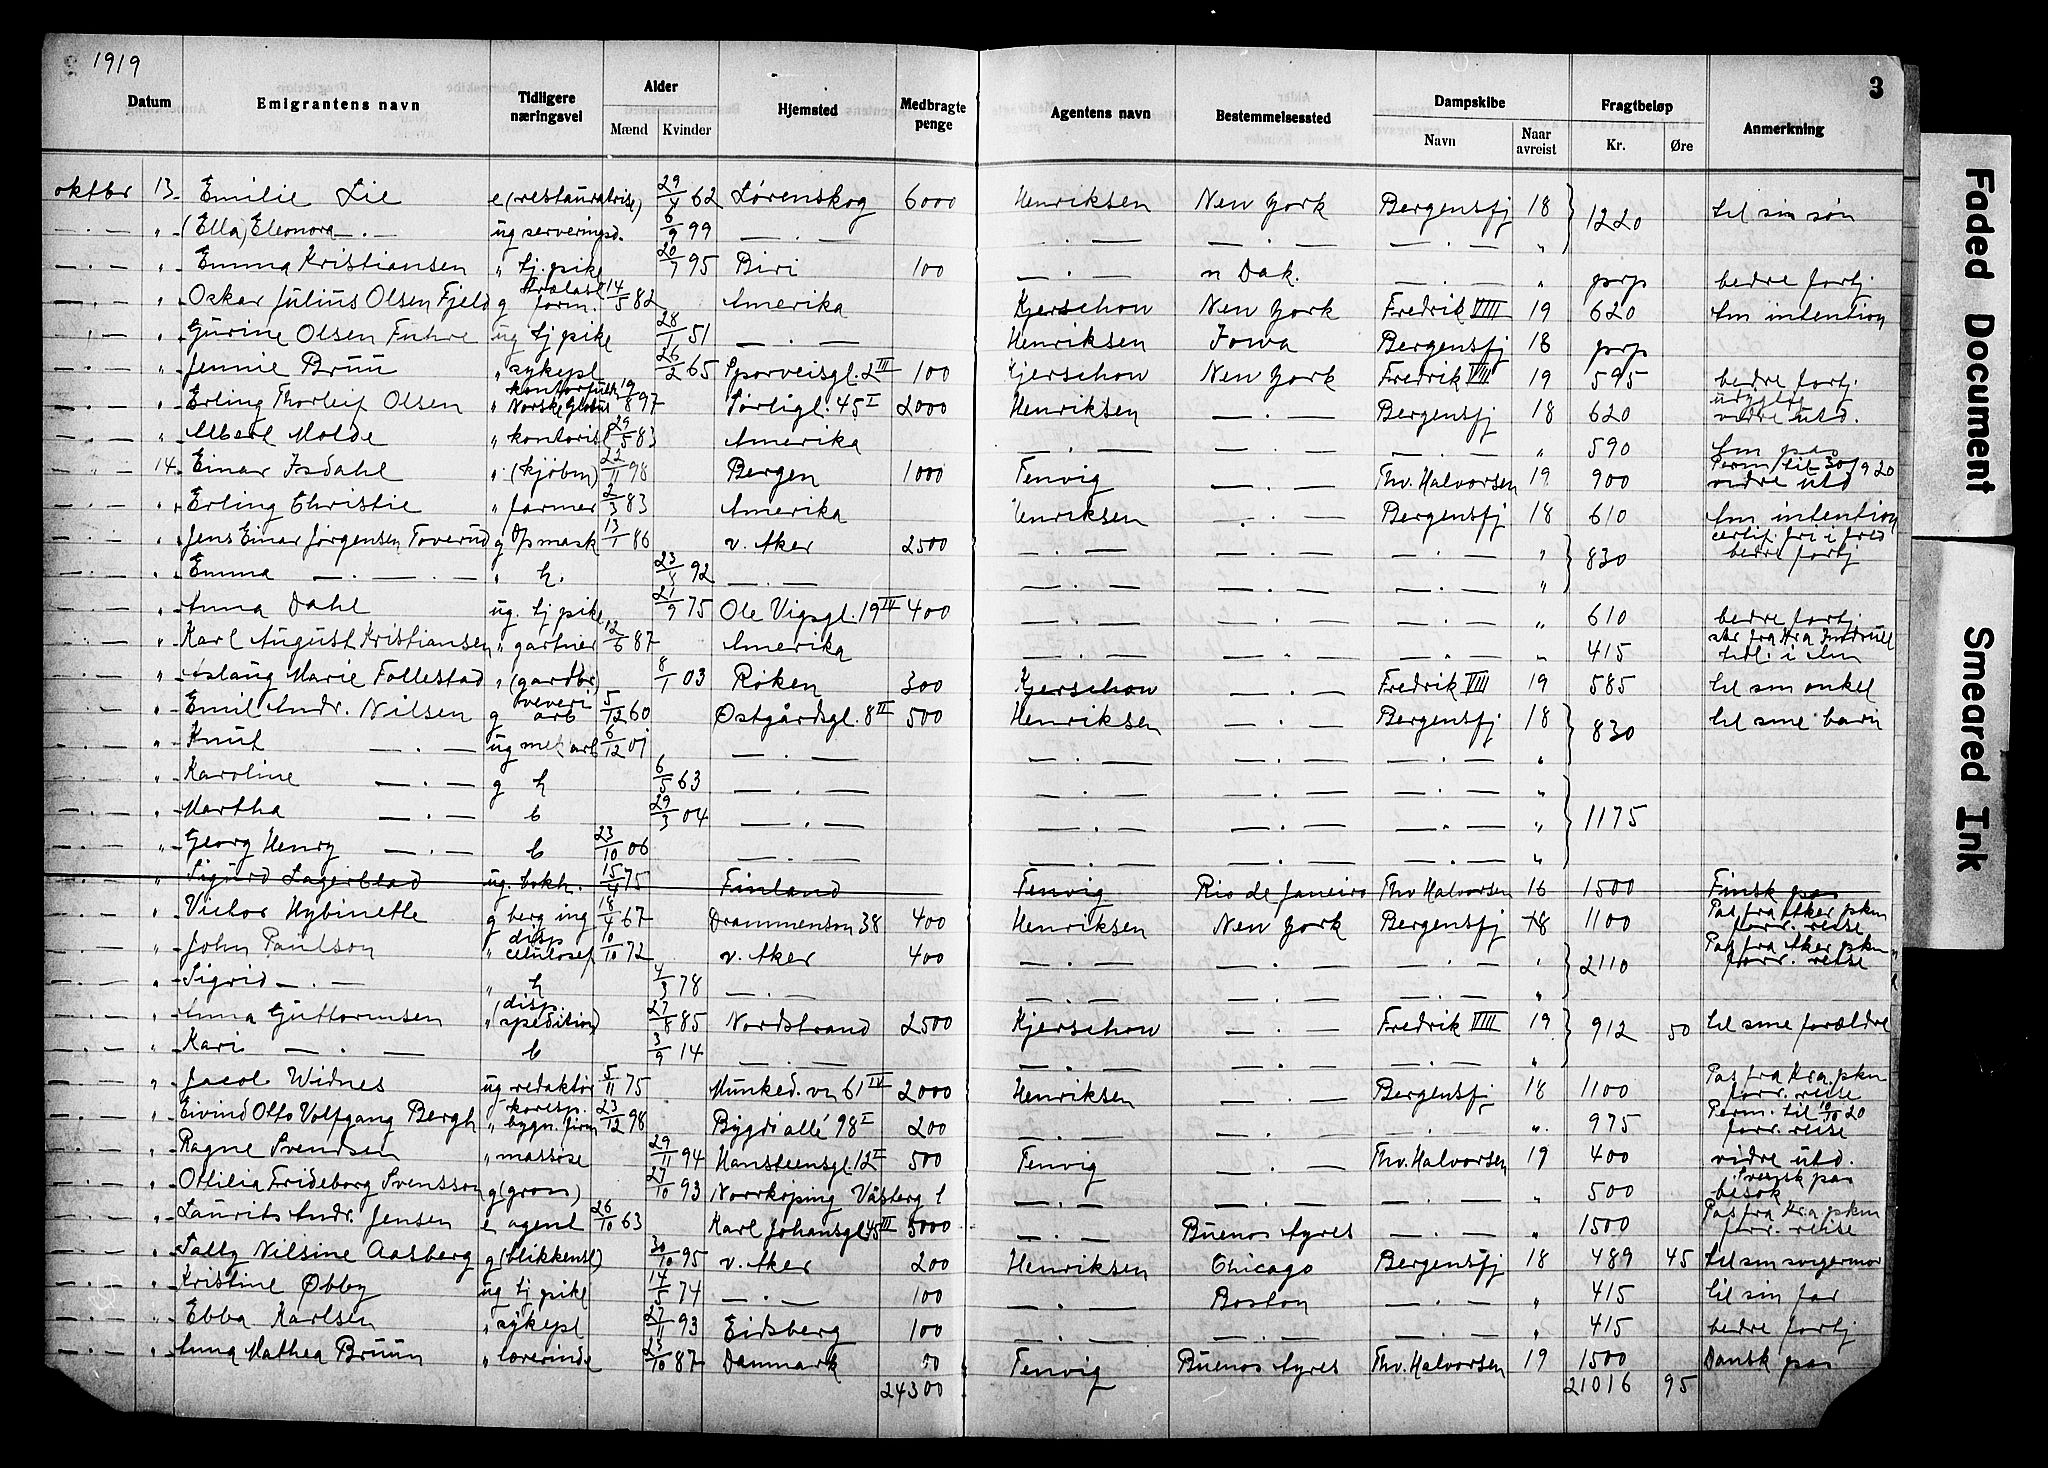 1919
3
Datum Emigrantens navn Tidligere næringsvei Alder Mænd Kvinder Hjemsted Medbragte penge Agentens navn Bestemmelsessted Dampskibe Navn Naar avreist Fragtbeløp Kr. Øre Anmerkning
oktbr 13. Emilie Lie e (restauratrise) 29/4 62 Lørenskog 6000 Henriksen New York Bergensfj 18 1220 til sin søn
— . — " (Ella) Eleonora — . — ug serveringsd. 6/9 99 — . — — . — — . — — . — "
— . — " Emma Kristiansen " tj. pike 20/7 95 Biri 100 — . — n Dak. — . — " prp bedre fortj
— . — " Oskar Julius Olsen Fjeld g form. 14/5 82 Amerika Kjerschow New York Fredrik VIII 19 620 Am intention
— . — " Gurine Olsen Fuhre ug tj pike 28/1 51 — . — Henriksen Iowa Bergensfj 18 prp
— . — " Jennie Bruu " sykepl 26/2 65 Sporveisgt. 2 III 100 Kjerschow New York Fredrik VIII 19 595 bedre fortj.
— . — " Erling Thorleif Olsen " Norske Globus 19/8 97 Sørligt. 45 I 2000 Henriksen — . — Bergensfj 18 620 vidre utd.
— . — " Albert Molde " kontorist 29/5 83 Amerika — . — — . — — . — " 590 Am pas
— . — 14. Einar Isdahl " (kjøbm) 22/11 98 Bergen 1000 Tenvig — . — Thv. Halvorsen 19 900 Perm til 30/9 20 vidre utd
— . — " Erling Christie " farmer 2/3 83 Amerika Henriksen — . — Bergensfj 18 610 Am intention
— . — " Jens Einar Jørgensen Toverud g Opmask 13/1 86 v. Aker 2500 — . — — . — — . — " 830 certif. fri i fred bedre fortj
— . — " Emma — . — " h. 23/8 92 — . — — . — — . — — . — "
— . — " Anna Dahl ug. tj pike 21/9 75 Ole Vigsgt. 19 IV 400 — . — — . — — . — " 610 bedre fortj
— . — " Karl August Kristiansen " gartner 12/6 87 Amerika — . — — . — — . — " 415 tidl. i Am
— . — " Aslaug Marie Follestad " (gardbr) 8/1 03 Røken 300 Kjerschow — . — Fredrik VIII 19 585 til sin onkel
— . — " Emil Andr. Nilsen g veveri arb 5/12 60 Østgårdsgt. 8 II 500 Henriksen — . — Bergensfj 18 830 til sine barn
— . — " Knut — . — ug mek arb 6/12 01 — . — — . — — . — — . — "
— . — " Karoline — . — g h 6/5 63 — . — — . — — . — — . — " 1175
— . — " Martha — . — b 29/3 04 — . — — . — — . — — . — "
— . — " Georg Henry — . — b 23/10 06 — . — — . — — . — — . — "
— . — " Sigurd Lagerblad ug. bokh. 15/4 75 Finland Tenvig Rio de Janeiro Thv Halvorsen 16 1500 Finsk pas
— . — " Victor Hybinette g berg ing 18/4 67 Drammensv 38 400 Henriksen New York Bergensfj 18 1100 Pas fra Aker pkm forr. reise
— . — " John Paulson " disp celulosef 10/10 72 v. Aker 400 — . — — . — — . — " 2110 Pas fra Aker pkm forr. reise
— . — " Sigrid — . — " h 4/3 78 — . — — . — — . — — . — "
— . — " Anna Guttormsen " (disp. spedition) 27/8 85 Nordstrand 2500 Kjerschow — . — Fredrik VIII 19 912 50 til sine forældre
— . — " Kari — . — b 3/9 14 — . — — . — — . — — . — "
— . — " Jacob Widnes ug redaktør 5/11 75 Munked. vn 61 IV 2000 Henriksen — . — Bergensfj 18 1100 Pas fra Kra. pkm forr. reise
— . — " Eivind Otto Volfgang Bergh " koresp. bygn. firm 23/12 98 Bygdø allé 98 I 200 — . — — . — — . — " 975 Perm. til 10/10 20 forr. reise
— . — " Ragne Svendsen " massøse 29/11 94 Hansteensgt. 12 I 500 Tenvig — . — Thv. Halvorsen 19 400 vidre utd.
— . — " Ottilia Frideborg Svensson g (gross) 27/10 93 Norrköping 1 — . — — . — — . — " 500 Svensk pas besøk
— . — " Laurits Andr. Jensen e agent 26/10 63 Karl Johansgt 45 III 5000 — . — Buenos Ayres — . — " 1500 Pas fra Kra pkm forr. reise
— . — " Sally Nilsine Aasberg g (blikkensl) 30/10 95 v. Aker 200 Henriksen Chicago Bergensfj 18 489 45 til sin svigermor
— . — " Kristine Øbby ug tj pike 14/5 74 — . — 100 — . — Boston — . — " 415 til sin far
— . — " Ebba Karlsen " sykepl 27/11 93 Eidsberg 100 — . — — . — — . — " 415 bedre fortj
— . — " Anna Mathea Bruun " lærerinde 25/10 87 Danmark 50 Tenvig Buenos Ayres Thv. Halvorsen 19 1500 Dansk pas
24300 21016 95
Faded Document
Smeared Ink